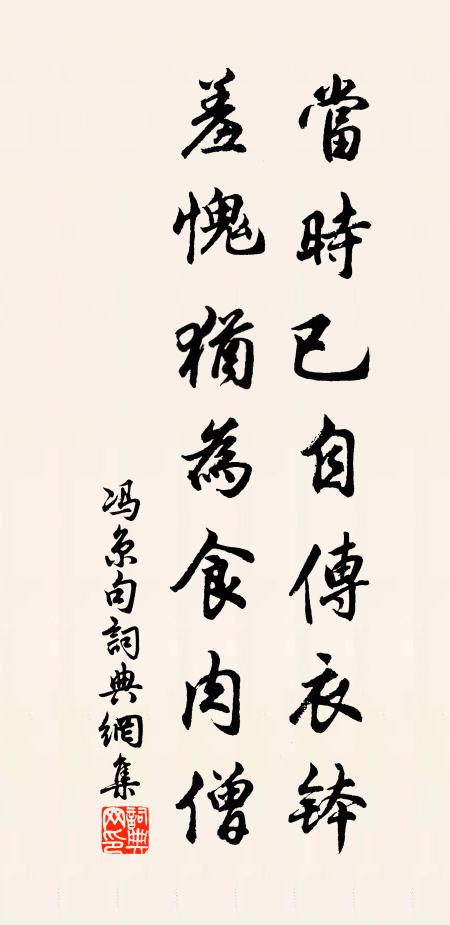 當時已自傳衣鉢
羞愧猶為食肉僧
冯京句詞典網集
詞典网印